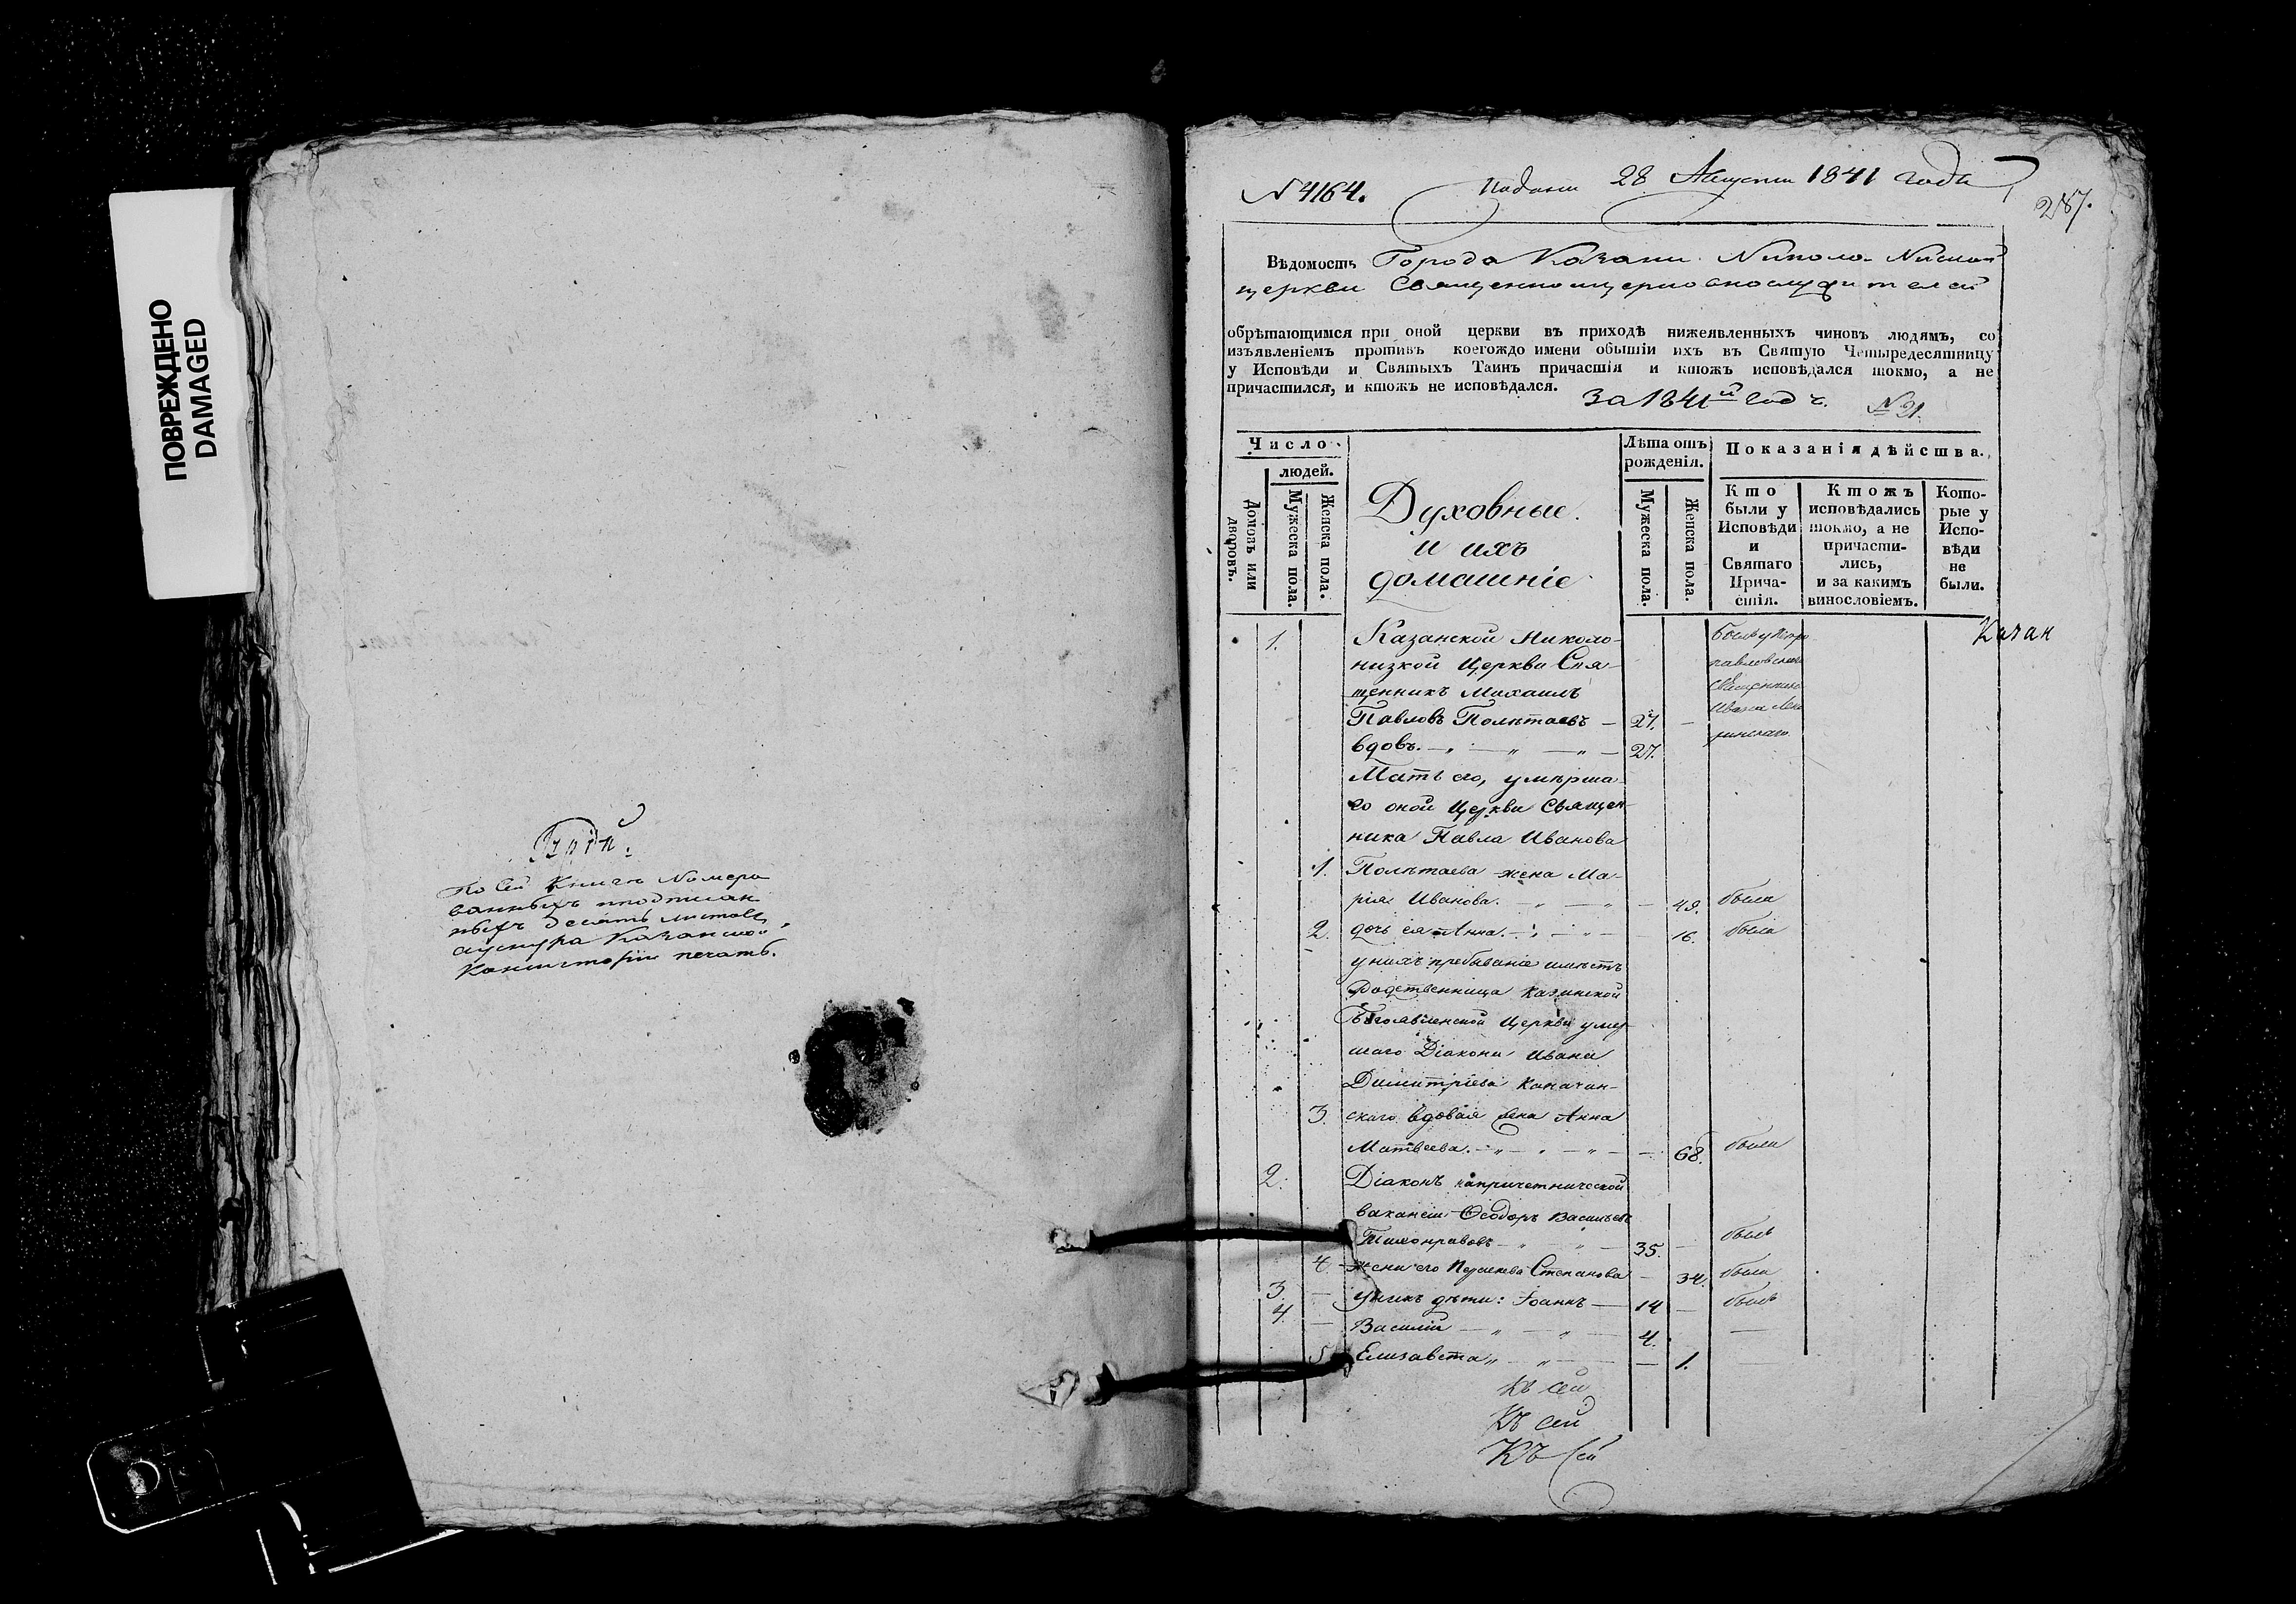 ПОВРЕЖДЕНО
DAMAGED
По сей Книгѣ Номеро
ванныхъ
ныхъ десять листовъ,
Казанской
Консисторіи печать.
N 4164.
Подана 28 Августа 1841 года
287.
Вѣдомость Города Казани Николо-
церкви Священноцерковнослужителей
обрѣтающимся при оной церкви въ приходѣ нижеявленныхъ чиновъ людямъ, со
изъявленіемъ противъ коегождо имени бытіи ихъ въ Святую Четыредесятницу
у Исповѣди и Святыхъ Таинъ причастія и ктожъ исповѣдался токмо, а не
причастился, и ктожъ не исповѣдался.
За 1841й годъ. N 21.
Число
людей.
Домовъ или дворовъ.
Мужеска пола.
Женска пола.
Духовные
и ихъ
домашніе
Лѣта отъ
рожденія.
Мужеска пола.
Женска пола.
Показанія дѣйства.
Кто
были у
Исповѣди
и
Святаго
Прича-
стія.
Ктожъ
исповѣдались
токмо, а не
причасти-
лись,
и за какимъ
винословіемъ.
Кото-
рые у
Испо-
вѣди
не
были.
1. Казанской Николо-
низкой Церкви Свя-
щенникъ Михаилъ
Павловъ Полѣтаевъ — 27. —
вдовъ. — 27.
Былъ у Петро
павловскаго
священника
Ивана
Казан
Мать его, умерша-
го оной Церкви Священ-
ника Павла Иванова
1. Полѣтаева жена Ма-
рія Иванова. — 49. была
2. дочь ея Анна. — 16. была
у нихъ пребываніе имѣетъ
Родственница Казанской
Богоявленской Церкви умер
шаго Діакона Ивана
Димитріева
3. скаго вдовая жена Анна
Матвеева. — 68. была
2. Діаконъ на причетнической
вакансіи Ѳеодоръ Васильевъ
Тихонравовъ — 35. — былъ
4. жена его Степанова — 34. была
3. — у нихъ дѣти: Іоаннъ — 14 — былъ
4. — Василій — 4. —
5 Елизавета — 1.
Къ сей
Къ сей
Къ сей